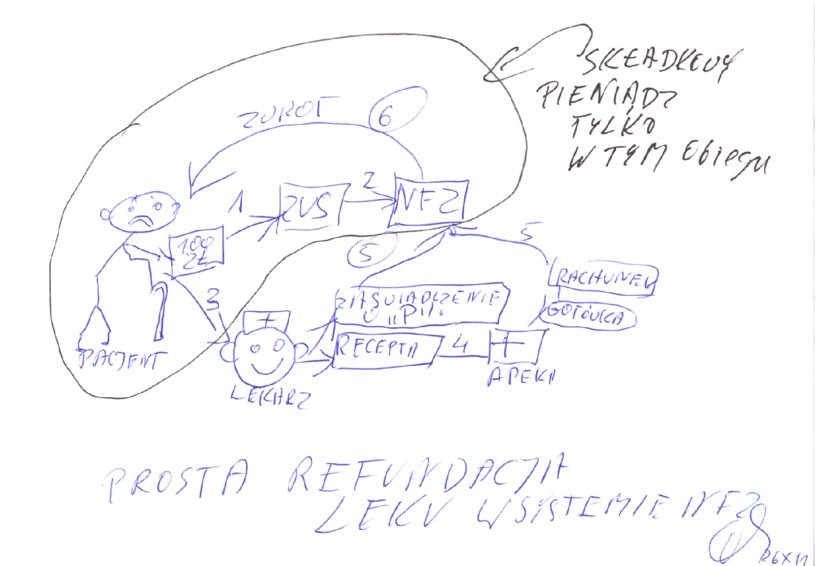 SKŁADKOWY
PIENIĄDZ
TYLKO
W TYM Obiegu
ZWROT 6
1
ZUS
2
NFZ
100
ZŁ
5
5
3
RACHUNEK
GOTÓWKA
ZAŚWIADCZENIE
O "P".
RECEPTA
4
PACJENT
LEKARZ
APEKA
PROSTA REFUNDACJA
LEKU W SYSTEMIE NFZ